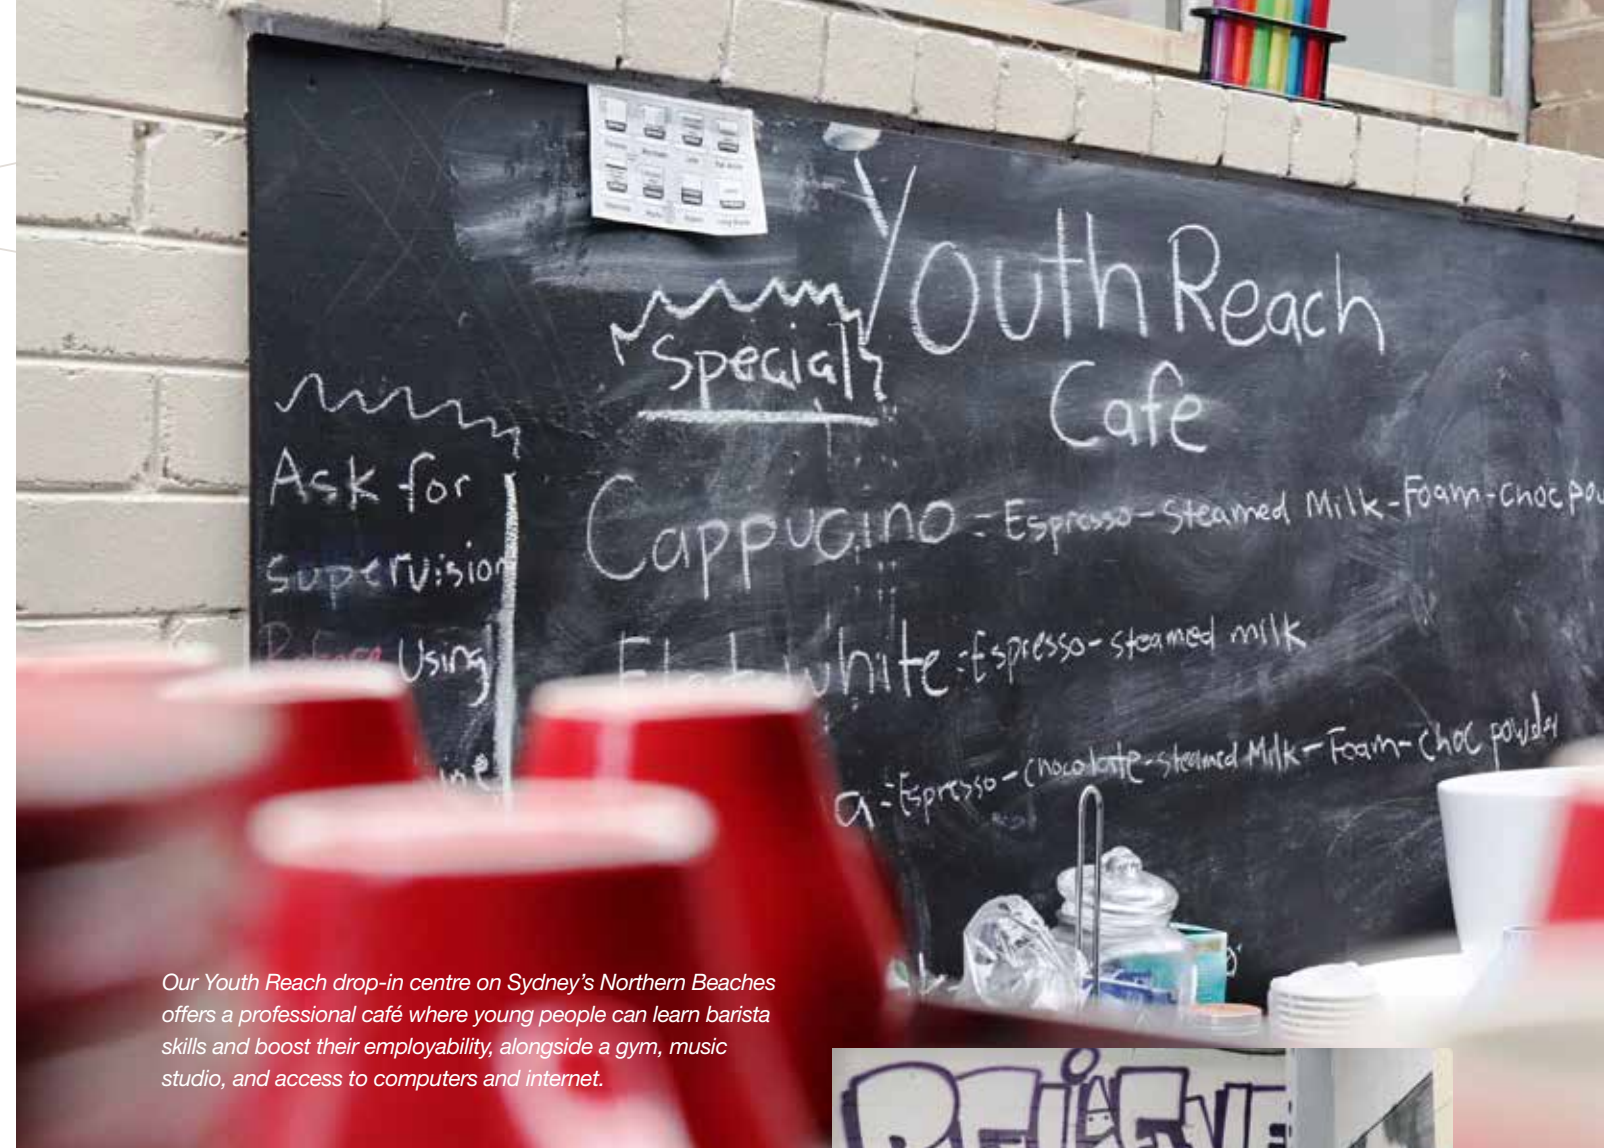 Youth Reach
Cafe
Special
Ask for
supervision
Before Using
Cappucino = Espresso - Steamed Milk - Foam - Choc
Flat white = Espresso - steamed milk
= Espresso - chocolate - steamed Milk - Foam - choc powder
Our Youth Reach drop-in centre on Sydney’s Northern Beaches
offers a professional café where young people can learn barista
skills and boost their employability, alongside a gym, music
studio, and access to computers and internet.
BELIEVE